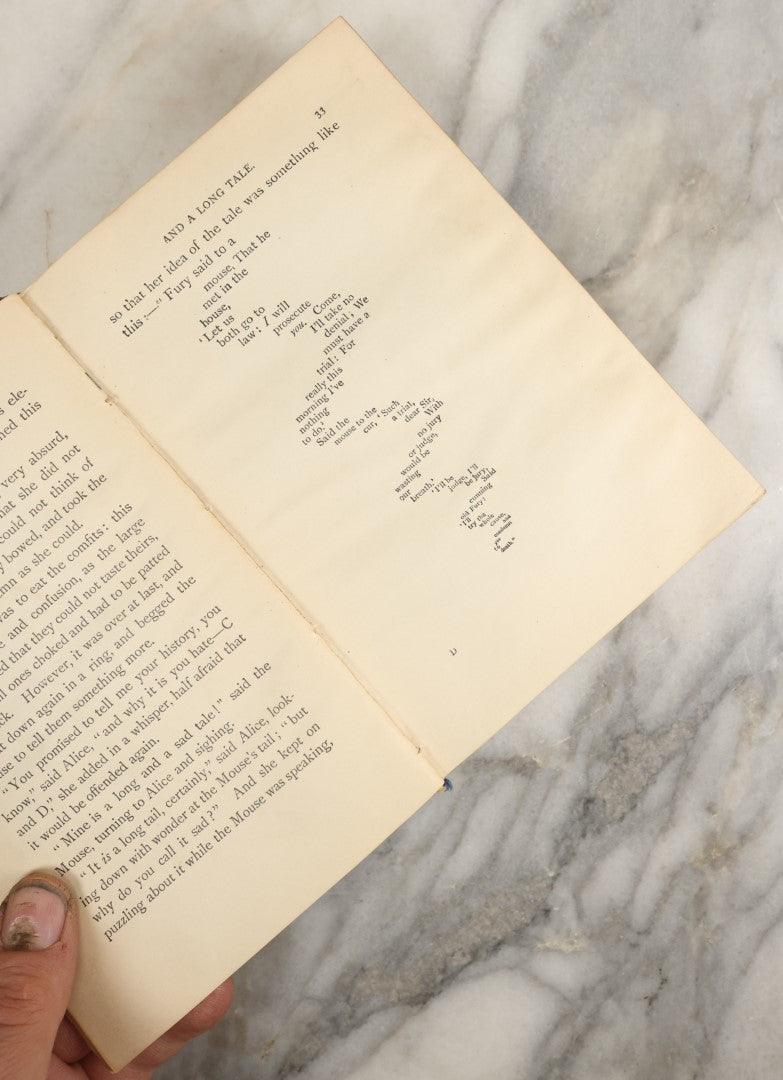 s ele-
ned this
very absurd,
hat she did not
could not think of
y bowed, and took the
emn as she could.
was to eat the comfits: this
e and confusion, as the large
ed that they could not taste theirs,
ll ones choked and had to be patted
ck. However, it was over at last, and
t down again in a ring, and begged the
use to tell them something more.
"You promised to tell me your history, you
know," said Alice, "and why it is you hate—C
and D," she added in a whisper, half afraid that
it would be offended again.
"Mine is a long and a sad tale!" said the
Mouse, turning to Alice and sighing.
"It is a long tail, certainly," said Alice, look-
ing down with wonder at the Mouse's tail; "but
why do you call it sad?" And she kept on
puzzling about it while the Mouse was speaking,
AND A LONG TALE. 33
so that her idea of the tale was something like
this:—" Fury said to a
mouse, That he
met in the
house,
'Let us
both go to
law: I will
prosecute
you. Come,
I'll take no
denial; We
must have a
trial: For
really this
morning I've
nothing
to do.'
Said the
mouse to the
cur, 'Such
a trial,
dear Sir,
With
no jury
or judge,
would be
wasting
our
breath.'
'I'll be
judge, I'll
be jury,'
Said
cunning
old Fury:
'I'll
try the
whole
cause,
and
condemn
you
to
death.'"
D